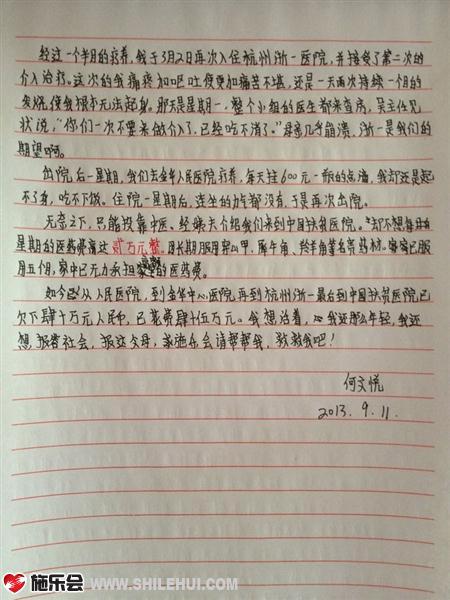 经过一个半月的疗养,我于3月2日再次入住杭州浙一医院,并接受了第二次的
介入治疗。这次的我疼痛加呕吐使更加痛苦不堪,还是一天两次持续一个月的
发烧,使我根本无法起身。那天是星期一,整个小组的医生都来查房,吴主任见
状说,“你们一次不要来做介入了,已经吃不消了。”母亲几乎崩溃,浙一是我们的
期望啊。
出院后一星期,我们去金华人民医院疗养,每天挂600元一瓶的点滴,我却还是起
不了身,吃不下饭。住院一星期后,连坐的力与都没有,于是再次出院。
无奈之下,只能投靠中医。经姨夫介绍我们来到中国扶贫医院。却不想每月
星期的医药费高达贰万元整,因长期服用穿山甲、犀牛角、羚羊角等名贵药材。
用五个月,家中已无力承担的医药费。
如今已从人民医院,到金华中心医院再到杭州浙一最后到中国扶贫医院,已
欠下肆十万元人民币,已花费肆十伍万元。我想活着,我还那么年轻,我还
想报答社会,报达父母,求施乐会请帮帮我,救救我吧!
何文悦
2013.9.11.
施乐会 WWW.SHILEHUI.COM